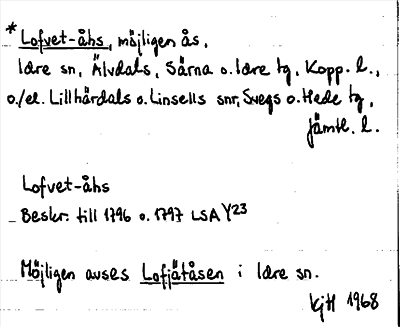 * Lofvet-åhs, möjligen ås,
Idre sn, Älvdals, Särna o. Idre tg, Kopp. l.,
o./el. Lillhärdals o. Linsells snr, Svegs o. Hede tg,
Jämtl. l.
Lofvet-åhs
Beskr. till 1796 o. 1797 LSA Y23
Möjligen avses Lofjätåsen i Idre sn.
KjH 1968